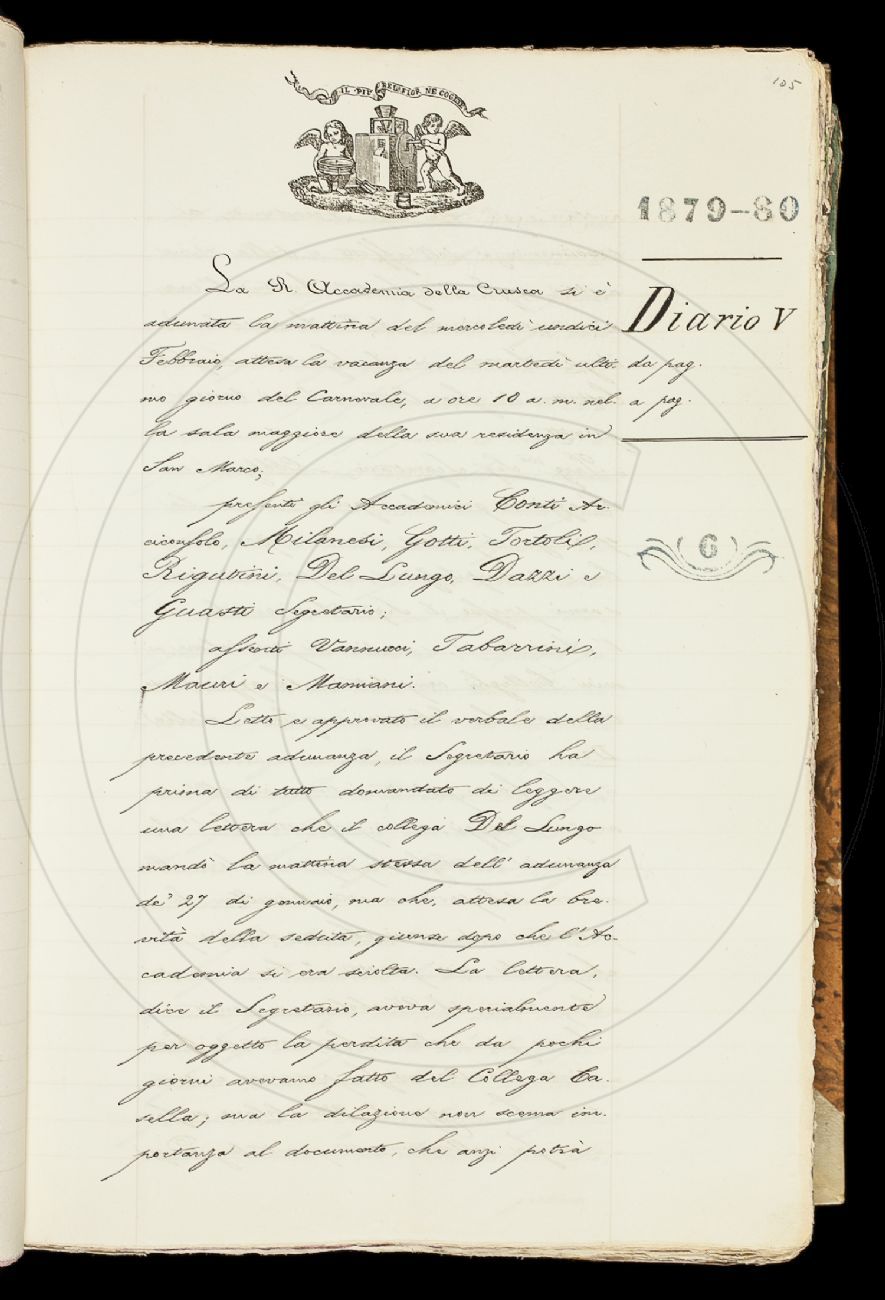 IL PIÙ BEL FIOR NE COGLIE
105
1879-80
Diario V
da pag.
a pag.
6
La R. Accademia della Crusca si è
adunata la mattina del mercoledì undici
Febbraio, attesa la vacanza del martedì ulti-
mo giorno del Carnevale, a ore 10 a. m. nel-
la sala maggiore della sua residenza in
San Marco;
presenti gli Accademici Conti Ar-
ciconsolo, Milanesi, Gotti, Tortoli,
Rigutini, Del Lungo, Dazzi e
Guasti Segretario;
assenti Vannucci, Tabarrini,
Mauri e Mamiani.
Letto e approvato il verbale della
precedente adunanza, il Segretario ha
prima di tutto domandato di leggere
una lettera che il collega Del Lungo
mandò la mattina stessa dell' adunanza
de' 27 di gennaio, ma che, attesa la bre-
vità della seduta, giunse dopo che l'Ac-
cademia si era sciolta. La lettera,
dice il Segretario, aveva specialmente
per oggetto la perdita che da pochi
giorni avevamo fatto del Collega Ca-
sella; ma la dilazione non scema im-
portanza al documento, che anzi potrà